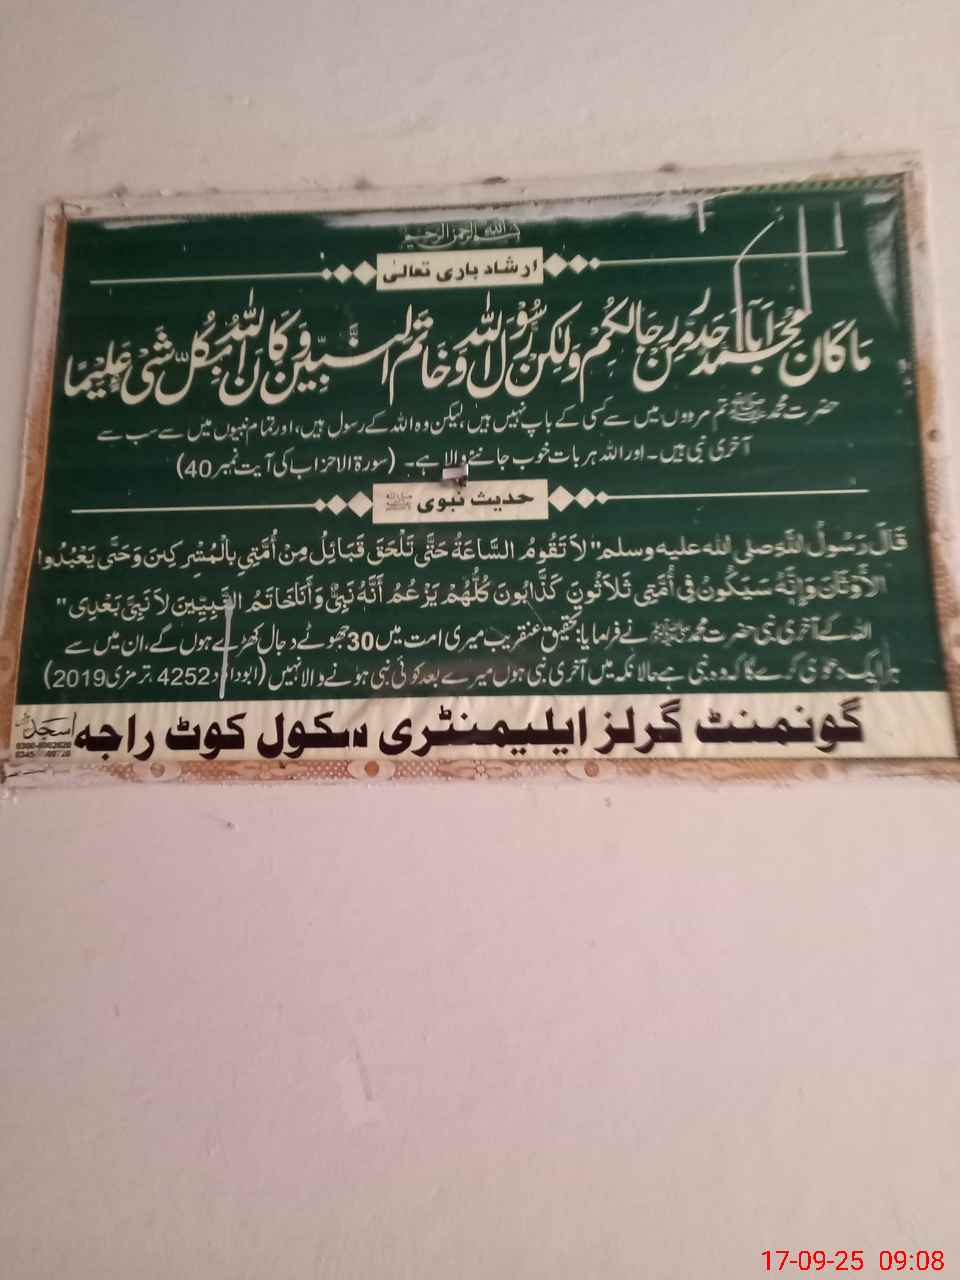 بسم الله الرحمن الرحيم
ارشاد باری تعالیٰ
مَا كَانَ مُحَمَّدٌ اَبَآ اَحَدٍ مِّنْ رِّجَالِكُمْ وَلٰكِنْ رَّسُوْلَ اللّٰهِ وَخَاتَمَ النَّبِيّٖنَ وَكَانَ اللّٰهُ بِكُلِّ شَیْءٍ عَلِيْمًا
حضرت محمد ﷺ تم مردوں میں سے کسی کے باپ نہیں ہیں، لیکن وہ اللہ کے رسول ہیں، اور تمام نبیوں میں سے سب سے
آخری نبی ہیں۔ اور اللہ ہر بات خوب جاننے والا ہے۔ (سورۃ الاحزاب کی آیت نمبر 40)
حدیث نبوی ﷺ
قَالَ رَسُولُ اللّٰهِ صلى الله عليه وسلم "لاَ تَقُومُ السَّاعَةُ حَتَّى تَلْحَقَ قَبَائِلُ مِنْ أُمَّتِي بِالْمُشْرِكِينَ وَحَتَّى يَعْبُدُوا
الأَوْثَانَ وَإِنَّهُ سَيَكُونُ فِي أُمَّتِي ثَلاَثُونَ كَذَّابُونَ كُلُّهُمْ يَزْعُمُ أَنَّهُ نَبِيٌّ وَأَنَا خَاتَمُ النَّبِيِّينَ لاَ نَبِيَّ بَعْدِي"
اللہ کے آخری نبی حضرت محمد ﷺ نے فرمایا: تحقیق عنقریب میری امت میں 30 جھوٹے دجال کھڑے ہوں گے، ان میں سے
ہر ایک دعویٰ کرے گا کہ وہ نبی ہے حالانکہ میں آخری نبی ہوں میرے بعد کوئی نبی ہونے والا نہیں (ابوداؤد 4252، ترمزی 2019)
گونمنٹ گرلز ایلیمنٹری سکول کوٹ راجہ
17-09-25 09:08